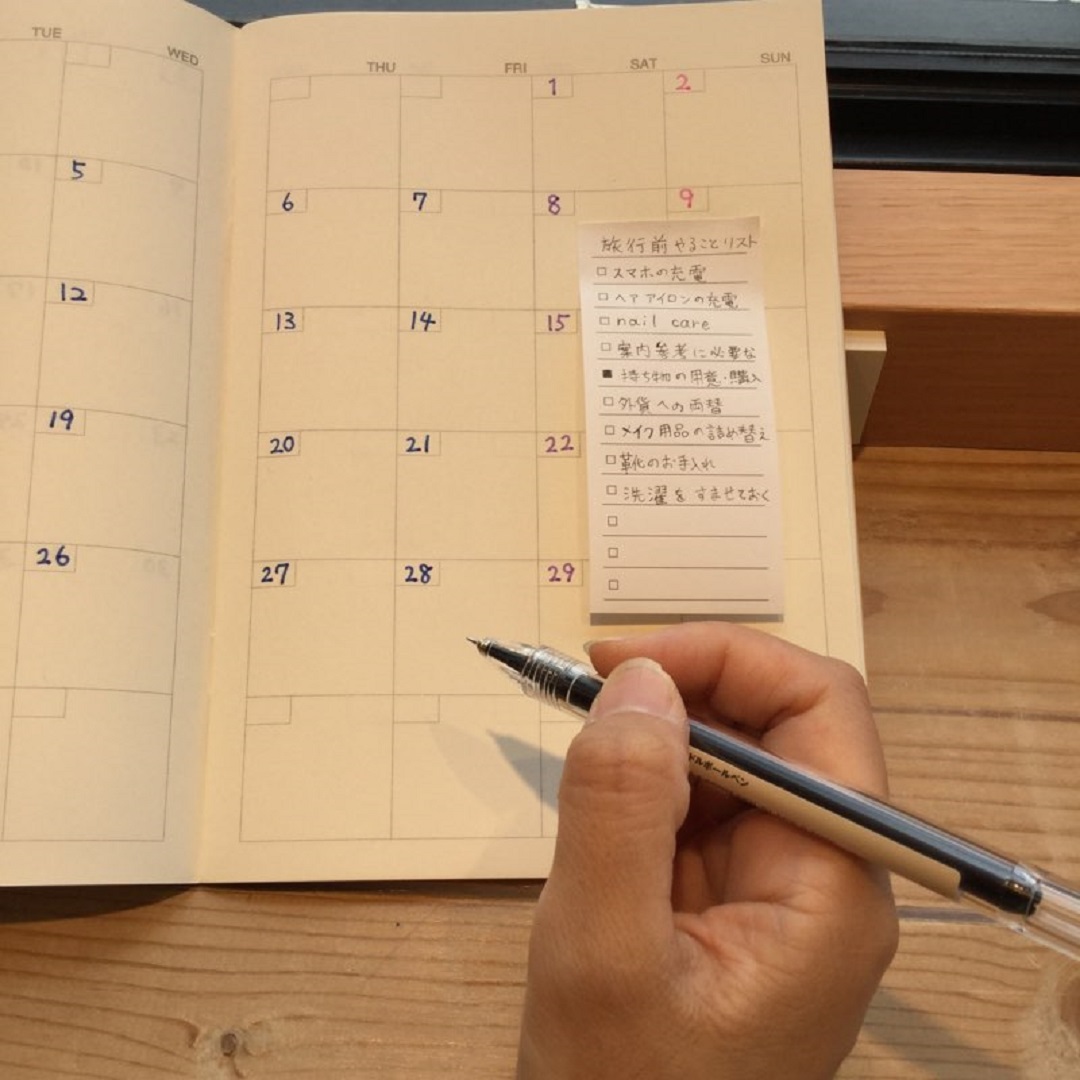 TUE WED THU FRI SAT SUN
1 2
5 6 7 8 9
12 13 14 15
19 20 21 22
26 27 28 29
旅行前やることリスト
□スマホの充電
□ヘアアイロンの充電
□nail care
□案内参考に必要な
■持ち物の用意・購入
□外貨への両替
□メイク用品の詰め替え
□靴のお手入れ
□洗濯をすませておく
□
□
□
ドルボールペン